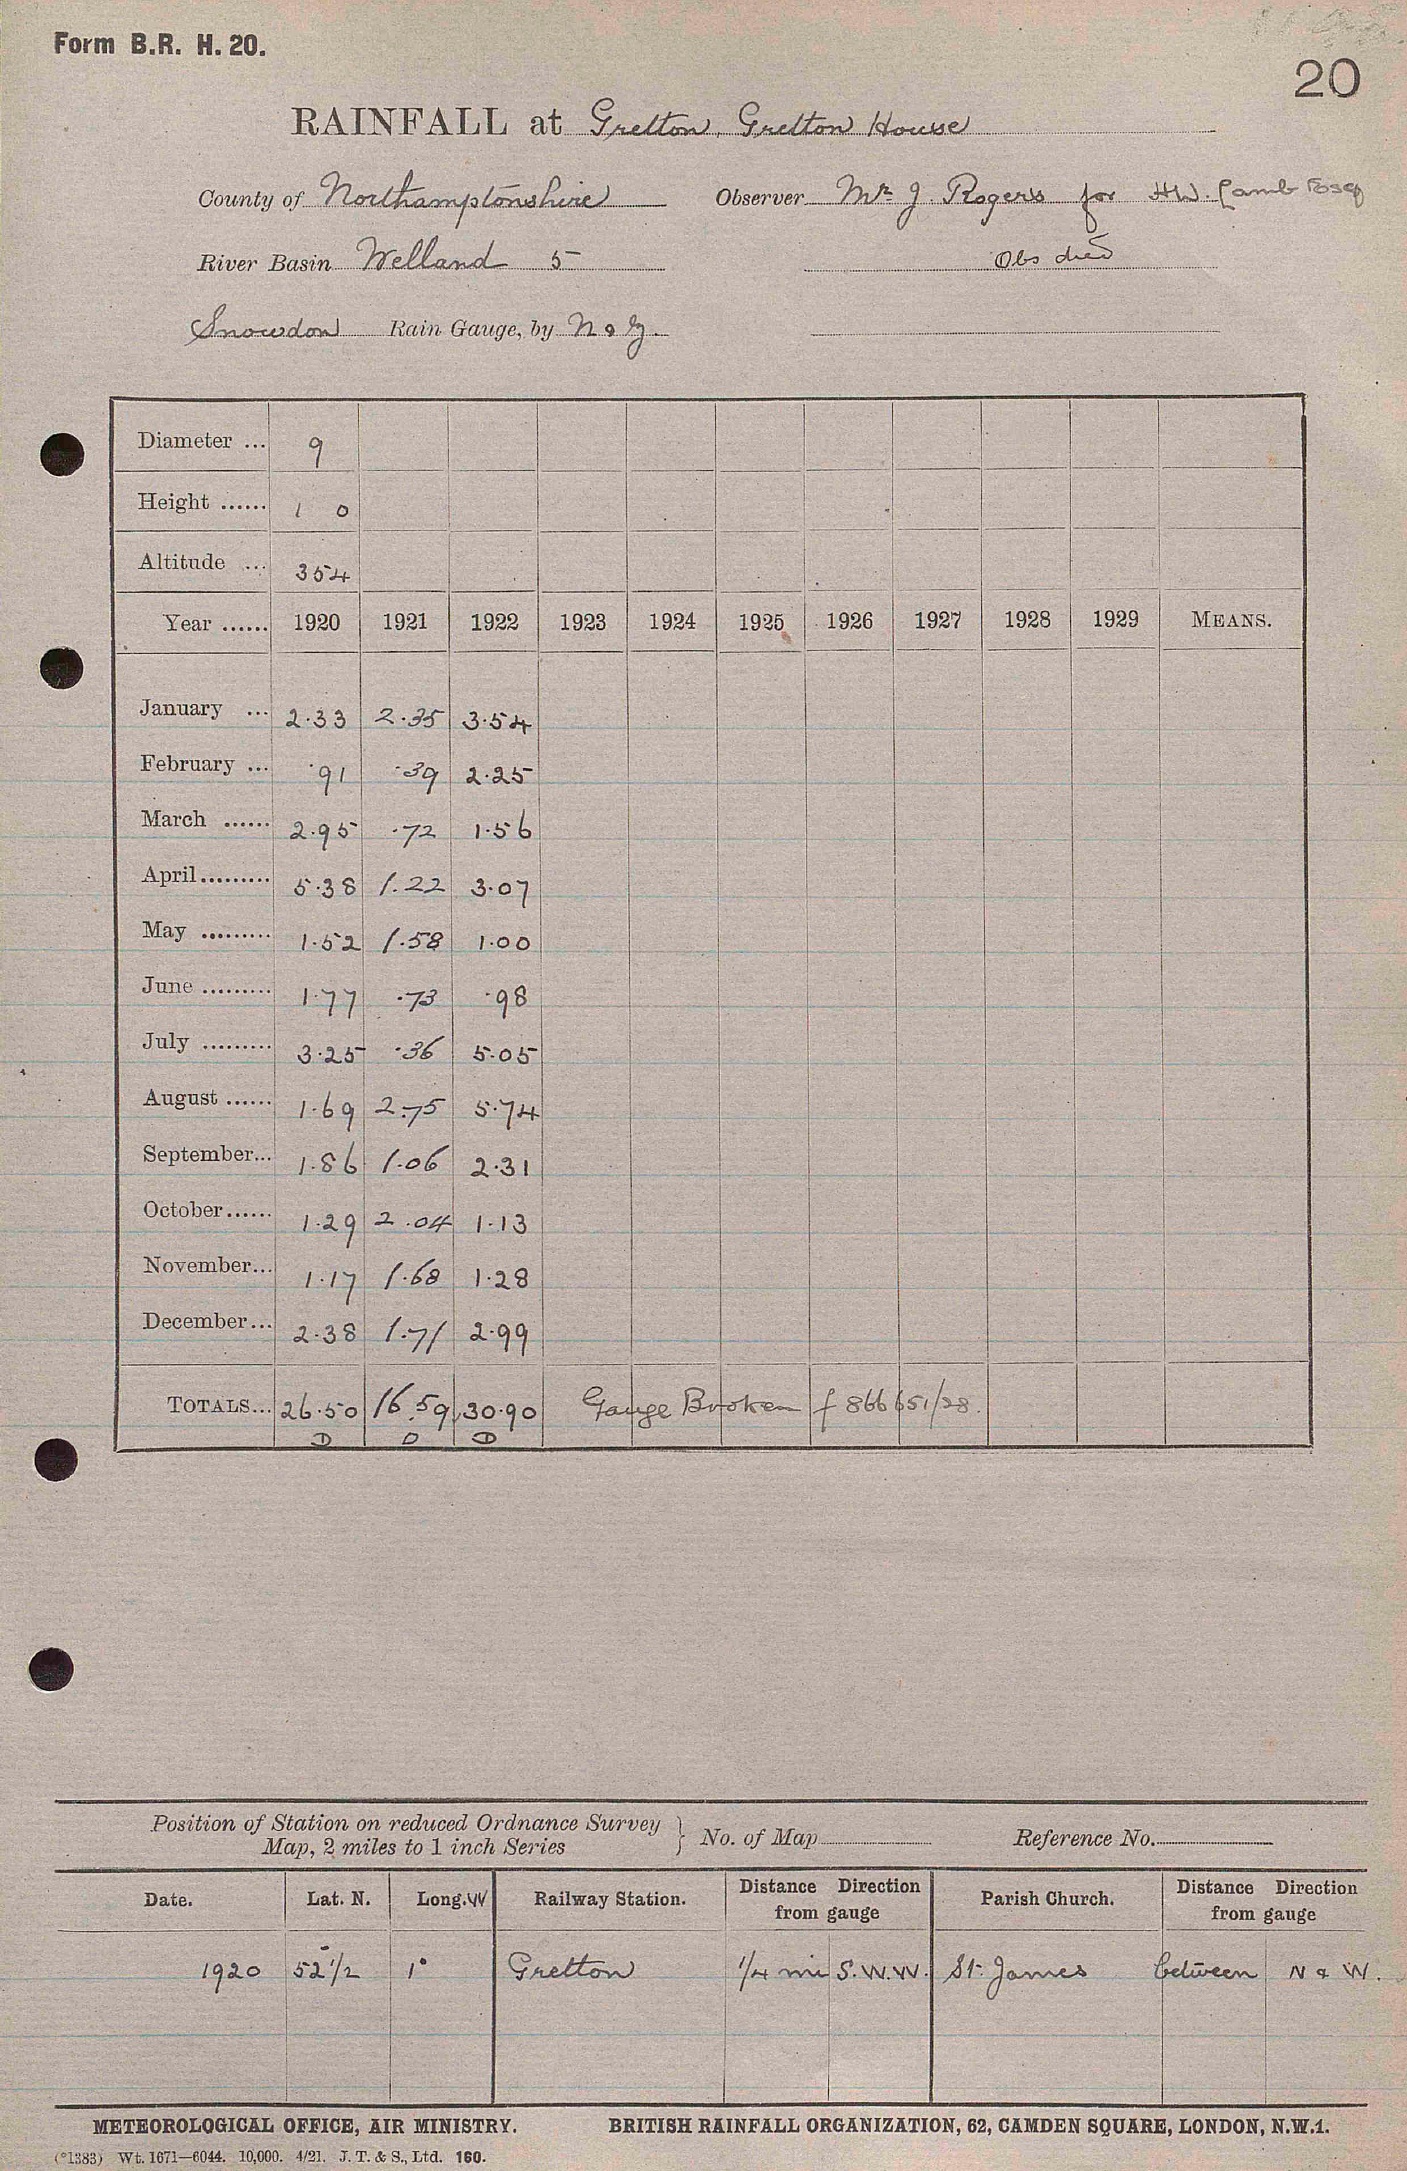 Form B.R. H. 20.
20
RAINFALL at Gretton, Gretton House
County of Northamptonshire Observer Mr. J. Rogers for H.W. Lamb Esq
River Basin Welland 5 Obs died
Snowdon Rain Gauge, by N & Z.
Diameter ... 9
Height ...... 1 0
Altitude ... 354
Year ...... 1920 1921 1922 1923 1924 1925 1926 1927 1928 1929 MEANS.
January ... 2.33 2.35 3.54
February ... .91 .39 2.25
March ...... 2.95 .72 1.56
April......... 5.38 1.22 3.07
May ......... 1.52 1.58 1.00
June ......... 1.77 .73 .98
July ......... 3.25 .36 5.05
August ...... 1.69 2.75 5.74
September... 1.86 1.06 2.31
October...... 1.29 2.04 1.13
November... 1.17 1.68 1.28
December... 2.38 1.71 2.99
TOTALS... 26.50 16.59 30.90 Gauge Broken f 866651/28.
D D D
Position of Station on reduced Ordnance Survey
Map, 2 miles to 1 inch Series } No. of Map Reference No.
Date. Lat. N. Long. W Railway Station. Distance Direction from gauge Parish Church. Distance Direction from gauge
1920 52 1/2 1° Gretton 1/4 mi S.W.W. St. James between N & W.
METEOROLOGICAL OFFICE, AIR MINISTRY. BRITISH RAINFALL ORGANIZATION, 62, CAMDEN SQUARE, LONDON, N.W.1.
(*1383) Wt. 1671—6044. 10,000. 4/21. J. T. & S., Ltd. 160.